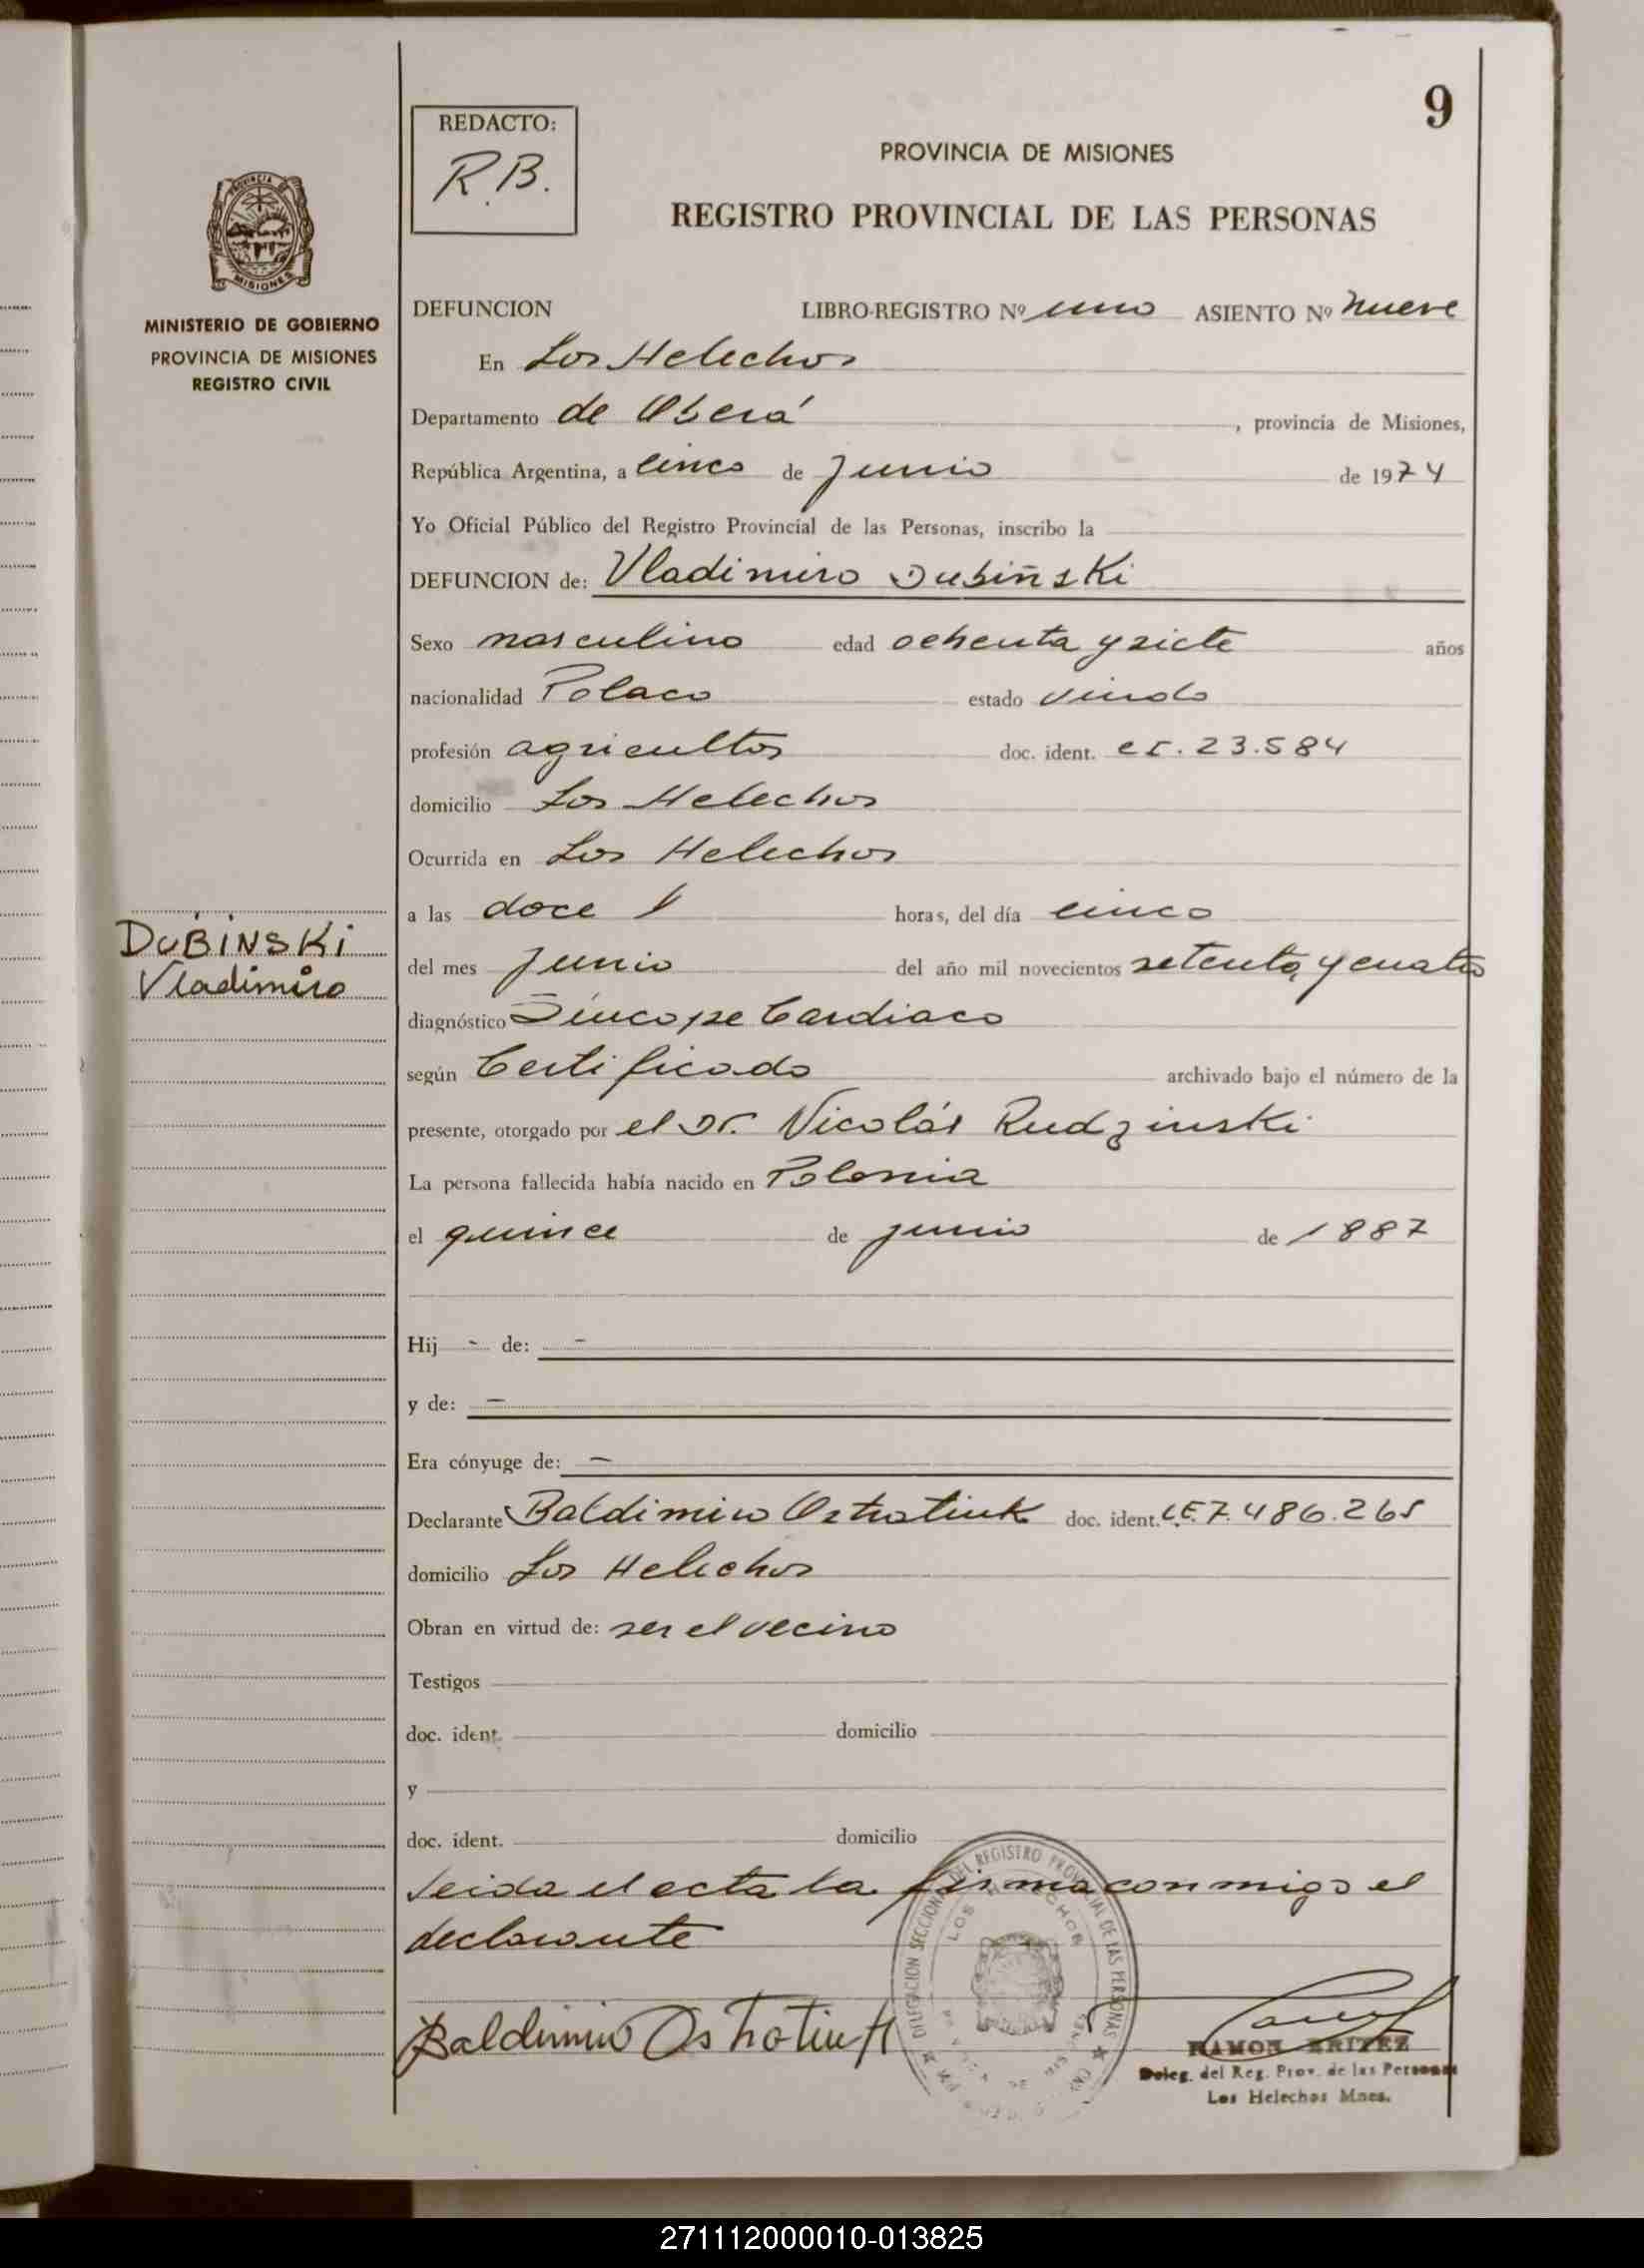 9
REDACTO:
R.B.
PROVINCIA DE MISIONES
REGISTRO PROVINCIAL DE LAS PERSONAS
MISIONES
MINISTERIO DE GOBIERNO
PROVINCIA DE MISIONES
REGISTRO CIVIL
DEFUNCION LIBRO-REGISTRO Nº uno ASIENTO Nº nueve
En Los Helechos
Departamento de Oberá, provincia de Misiones,
República Argentina, a cinco de Junio de 1974
Yo Oficial Público del Registro Provincial de las Personas, inscribo la
DEFUNCION de: Vladimiro Dubiñski
Sexo masculino edad ochenta y siete años
nacionalidad Polaco estado viudo
profesión agricultor doc. ident. CI. 23.584
domicilio Los Helechos
Ocurrida en Los Helechos
a las doce horas, del día cinco
DUBINSKI
Vladimiro
del mes Junio del año mil novecientos setenta y cuatro
diagnóstico Síncope Cardiaco
según Certificado archivado bajo el número de la
presente, otorgado por el Dr. Nicolás Rudzinski
La persona fallecida había nacido en Polonia
el quince de junio de 1887
Hij - de: -
y de: -
Era cónyuge de: -
Declarante Baldimiro Ostrotiuk doc. ident. L.E. 7.486.265
domicilio Los Helechos
Obran en virtud de: ser el vecino
Testigos
doc. ident. domicilio
y
doc. ident. domicilio
Leida el acta la firma conmigo el
declarante
Baldimiro Ostrotiuk
DELEGACION SECCIONAL DEL REGISTRO PROVINCIAL DE LAS PERSONAS
LOS HELECHOS
RAMON BRITEZ
Deleg. del Reg. Prov. de las Personas
Los Helechos Mnes.
271112000010-013825